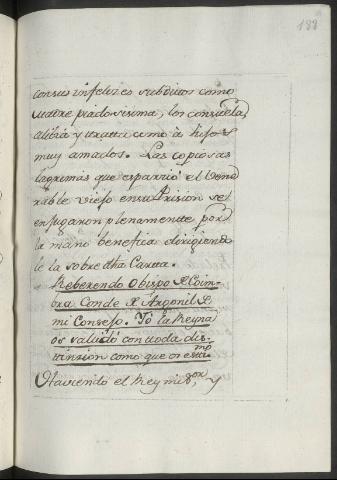 188
con sus infelizes subditos como
Madre piadosisima, los consuela,
alibia y tratta como à hijos
muy amados. Las copiosas
lagrimas que esparriò el Vene
rable viejo en su Prision se
enjugaron plenamente por
la mano benefica dirigiendo
le la sobre dha Carta.
Reberendo Obispo de Coim-
bra Conde de Argonil de
mi Consejo. Yo la Reyna
os saludo con toda dis-
tinsion como que os estimo
Haviendo el Rey mi Sor, y